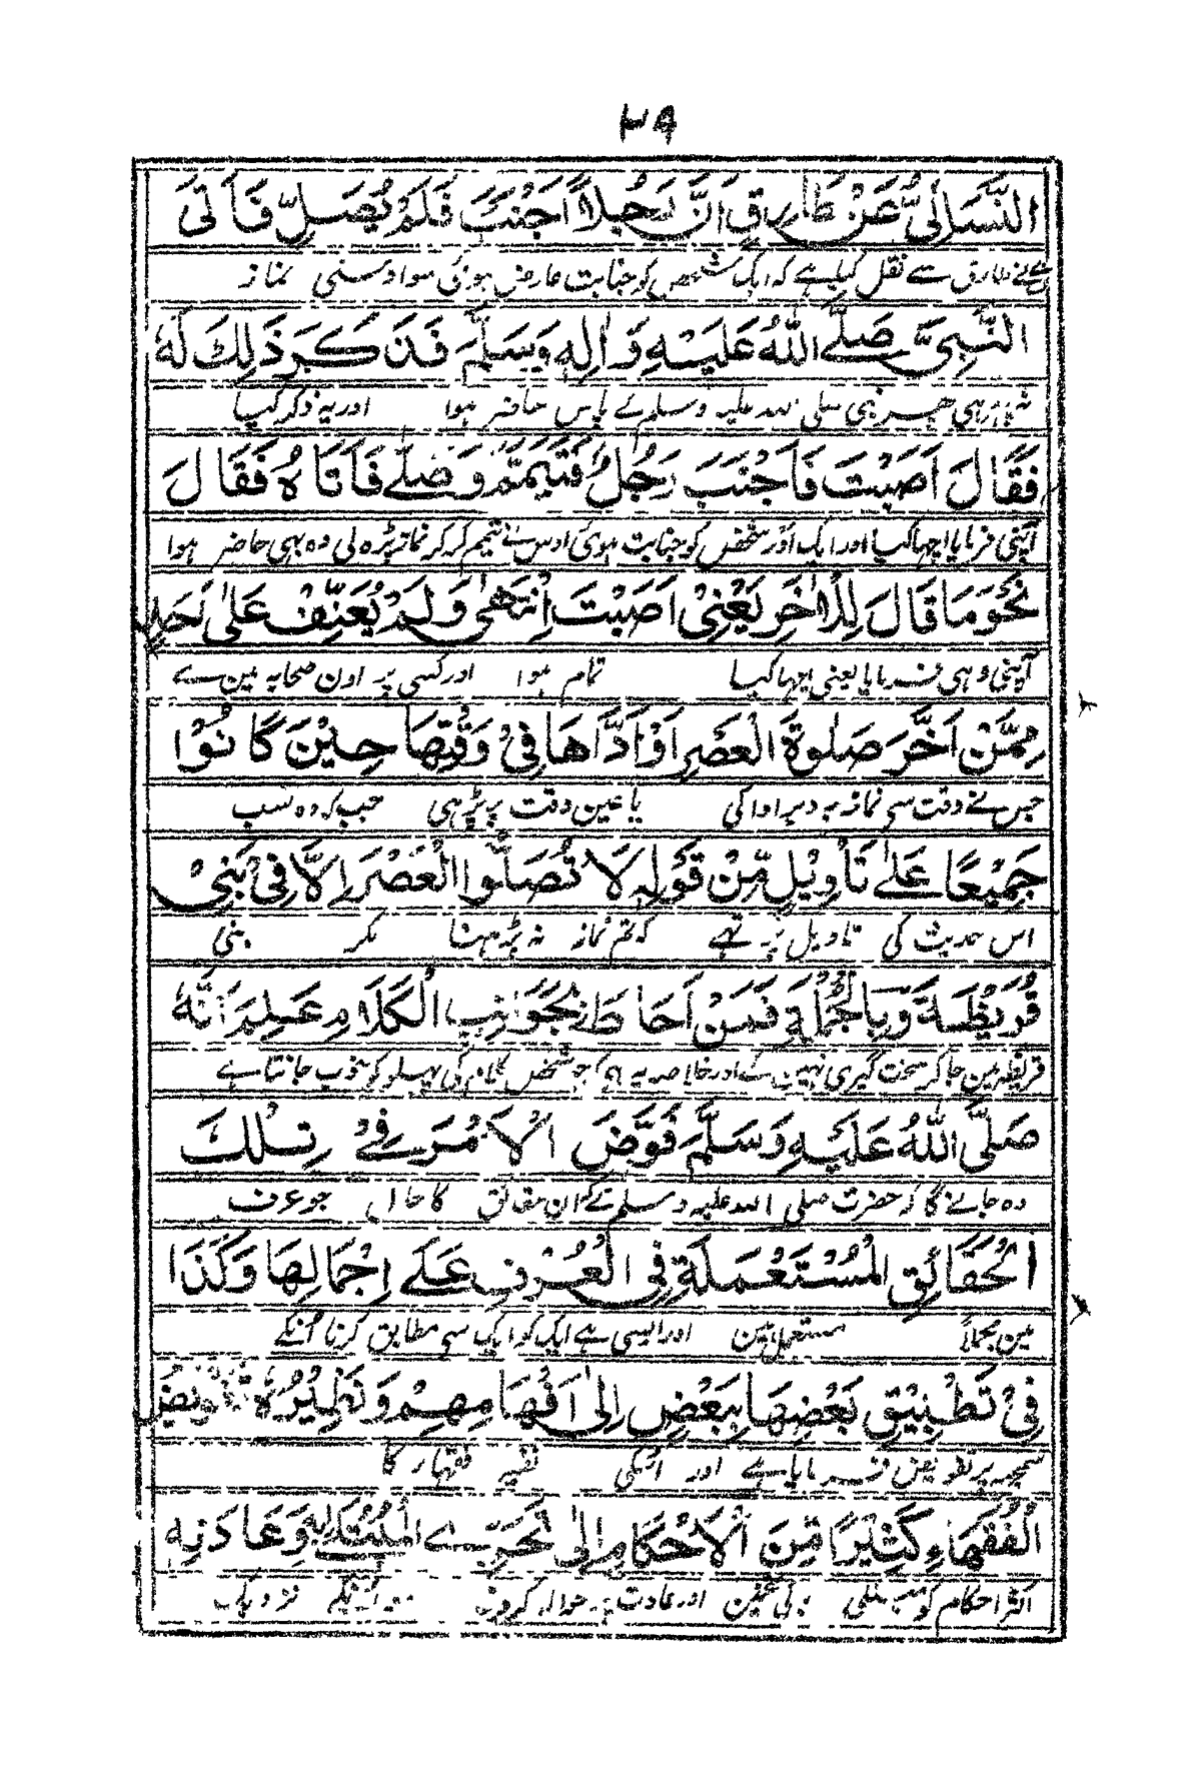 ٢٩
النَّسَائِيُّ عَنْ طَارِقٍ اَنَّ رَجُلًا اَجْنَبَ فَلَمْ يُصَلِّ فَاَتَى
نے طارق سے نقل کیا ہے کہ ایک شخص کو جنابت عارض ہوئی سو اوسنی نماز
النَّبِيَّ صَلَّے اللّٰهُ عَلَيْهِ وَاٰلِهٖ وَسَلَّمَ فَذَكَرَ ذٰلِكَ لَهٗ
نہ پڑہی پھر نبی صلی اللہ علیہ وسلم کے پاس حاضر ہوا اور یہ ذکر کیا
فَقَالَ اَصَبْتَ فَاَجْنَبَ رَجُلٌ فَتَيَمَّمَ وَصَلّٰے فَاَتَاهُ فَقَالَ
آپنی فرمایا اچہا کیا اور ایک اور شخص کو جنابت ہوئی اوس نے تیمم کر کر نماز پڑہ لی وہ بہی حاضر ہوا
نَحْوَ مَا قَالَ لِلْاٰخَرِ يَعْنِيْ اَصَبْتَ اِنْتَهٰى وَلَمْ يُعَنِّفْ عَلٰى اَحَدٍ
آپنی وہی فرمایا یعنی اچہا کیا تمام ہوا اور کسی پر اون صحابہ مین سے
مِمَّنْ اَخَّرَ صَلٰوةَ الْعَصْرِ اَوْ اَدَّاهَا فِيْ وَقْتِهَا حِيْنَ كَانُوْا
جس نے وقت سی نماز بہ دیر ادا کی یا عین وقت پر پڑہی جب کہ وہ سب
جَمِيْعًا عَلٰے تَأْوِيْلٍ مِّنْ قَوْلِهٖ لَا تُصَلُّوا الْعَصْرَ اِلَّا فِيْ بَنِيْ
اس حدیث کی تاویل پر تہے کہ تم نماز نہ پڑہنا مگر بنی
قُرَيْظَةَ وَبِالْجُمْلَةِ فَمَنْ اَحَاطَ بِجَوَانِبِ الْكَلَامِ عَلِمَ اَنَّهٗ
قریظہ مین جا کر سخت گیری نہین کے اور خلاصہ یہ ہی کہ جو شخص کلام کی پہلو کو خوب جانتا ہے
صَلَّى اللّٰهُ عَلَيْهِ وَسَلَّمَ فَوَّضَ الْاَمْرَ فِيْ تِلْكَ
وہ جانے گا کہ حضرت صلی اللہ علیہ وسلم نے ان حقائق کا حال جو عرف
الْحَقَائِقِ الْمُسْتَعْمَلَةِ فِي الْعُرْفِ عَلٰے اِجْمَالِهَا وَكَذَا
مین مجملاً مستعمل ہین اور ایسی ہے ایک کو ایک سی مطابق کرنا اُنکے
فِيْ تَطْبِيْقِ بَعْضِهَا بِبَعْضٍ اِلٰى اَفْهَامِهِمْ وَنَظِيْرُهٗ تَفْوِيْضُ
سمجہہ پر تفویض فرمایا ہے اور اسکی نظیر فقہاء کا
الْفُقَهَاءِ كَثِيْرًا مِّنَ الْاَحْكَامِ اِلٰى تَحَرِّے الْمُبْتَلٰى بِهٖ وَعَادَتِهٖ
اکثر احکام کو اور عادت پر حوالہ کرنا نزدیک